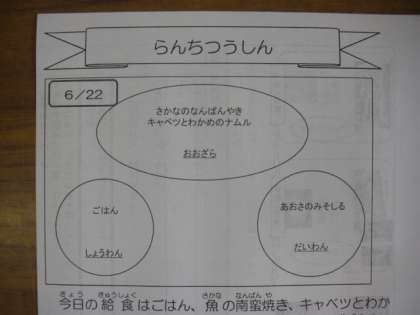 らんちつうしん
6/22
さかなのなんばんやき
キャベツとわかめのナムル
おおざら
ごはん
しょうわん
あおさのみそしる
だいわん
きょう きゅうしょく さかな なんばん や
今日の給食はごはん、魚の南蛮焼き、キャベツとわか